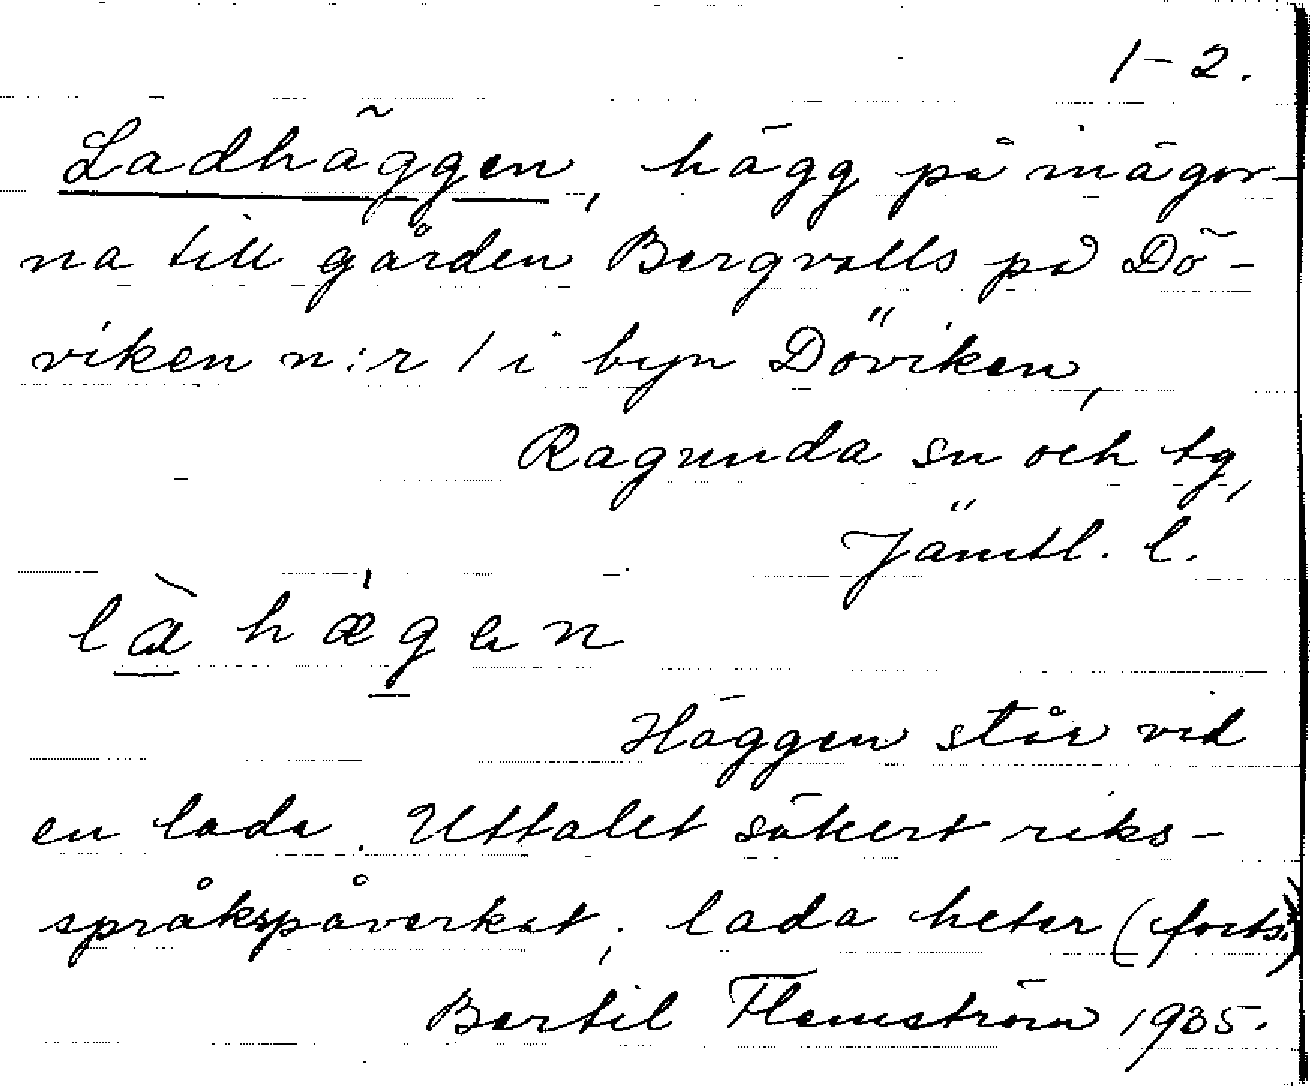 1-2.
Ladhäggen, hägg på inägor-
na till gården Bergvalls på Dö-
viken n:r 1 i byn Döviken,
Ragunda sn och tg,
Jämtl. l.
là hǽgen
Häggen står vid
en lada. Uttalet säkert riks-
språkspåverkat; lada heter (forts.)
Bertil Flemström 1935.